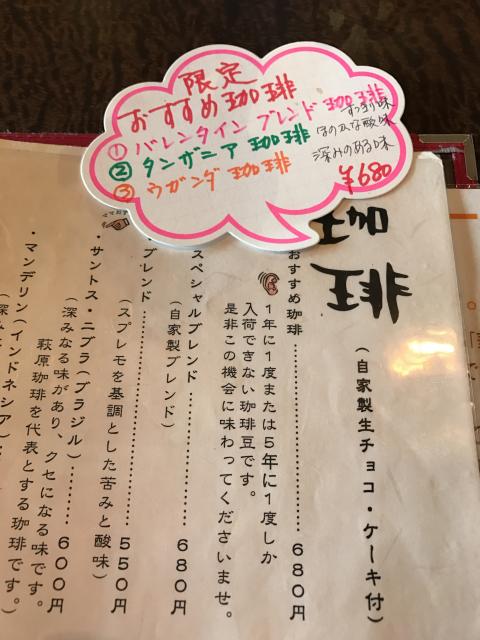 限定
おすすめ珈琲
① バレンタイン ブレンド 珈琲 すっきり味
② タンザニア 珈琲 ほのかな酸味
③ ウガンダ 珈琲 深みのある味
¥680
珈琲
(自家製生チョコ・ケーキ付)
おすすめ珈琲………………680円
1年に1度または5年に1度しか
入荷できない珈琲豆です。
是非この機会に味わってくださいませ。
スペシャルブレンド………………680円
(自家製ブレンド)
ブレンド………………550円
(スプレモを基調とした苦みと酸味)
・サントス・ニブラ(ブラジル)………………600円
(深みなる味があり、クセになる味です。
萩原珈琲を代表とする珈琲です。)
・マンデリン(インドネシア)